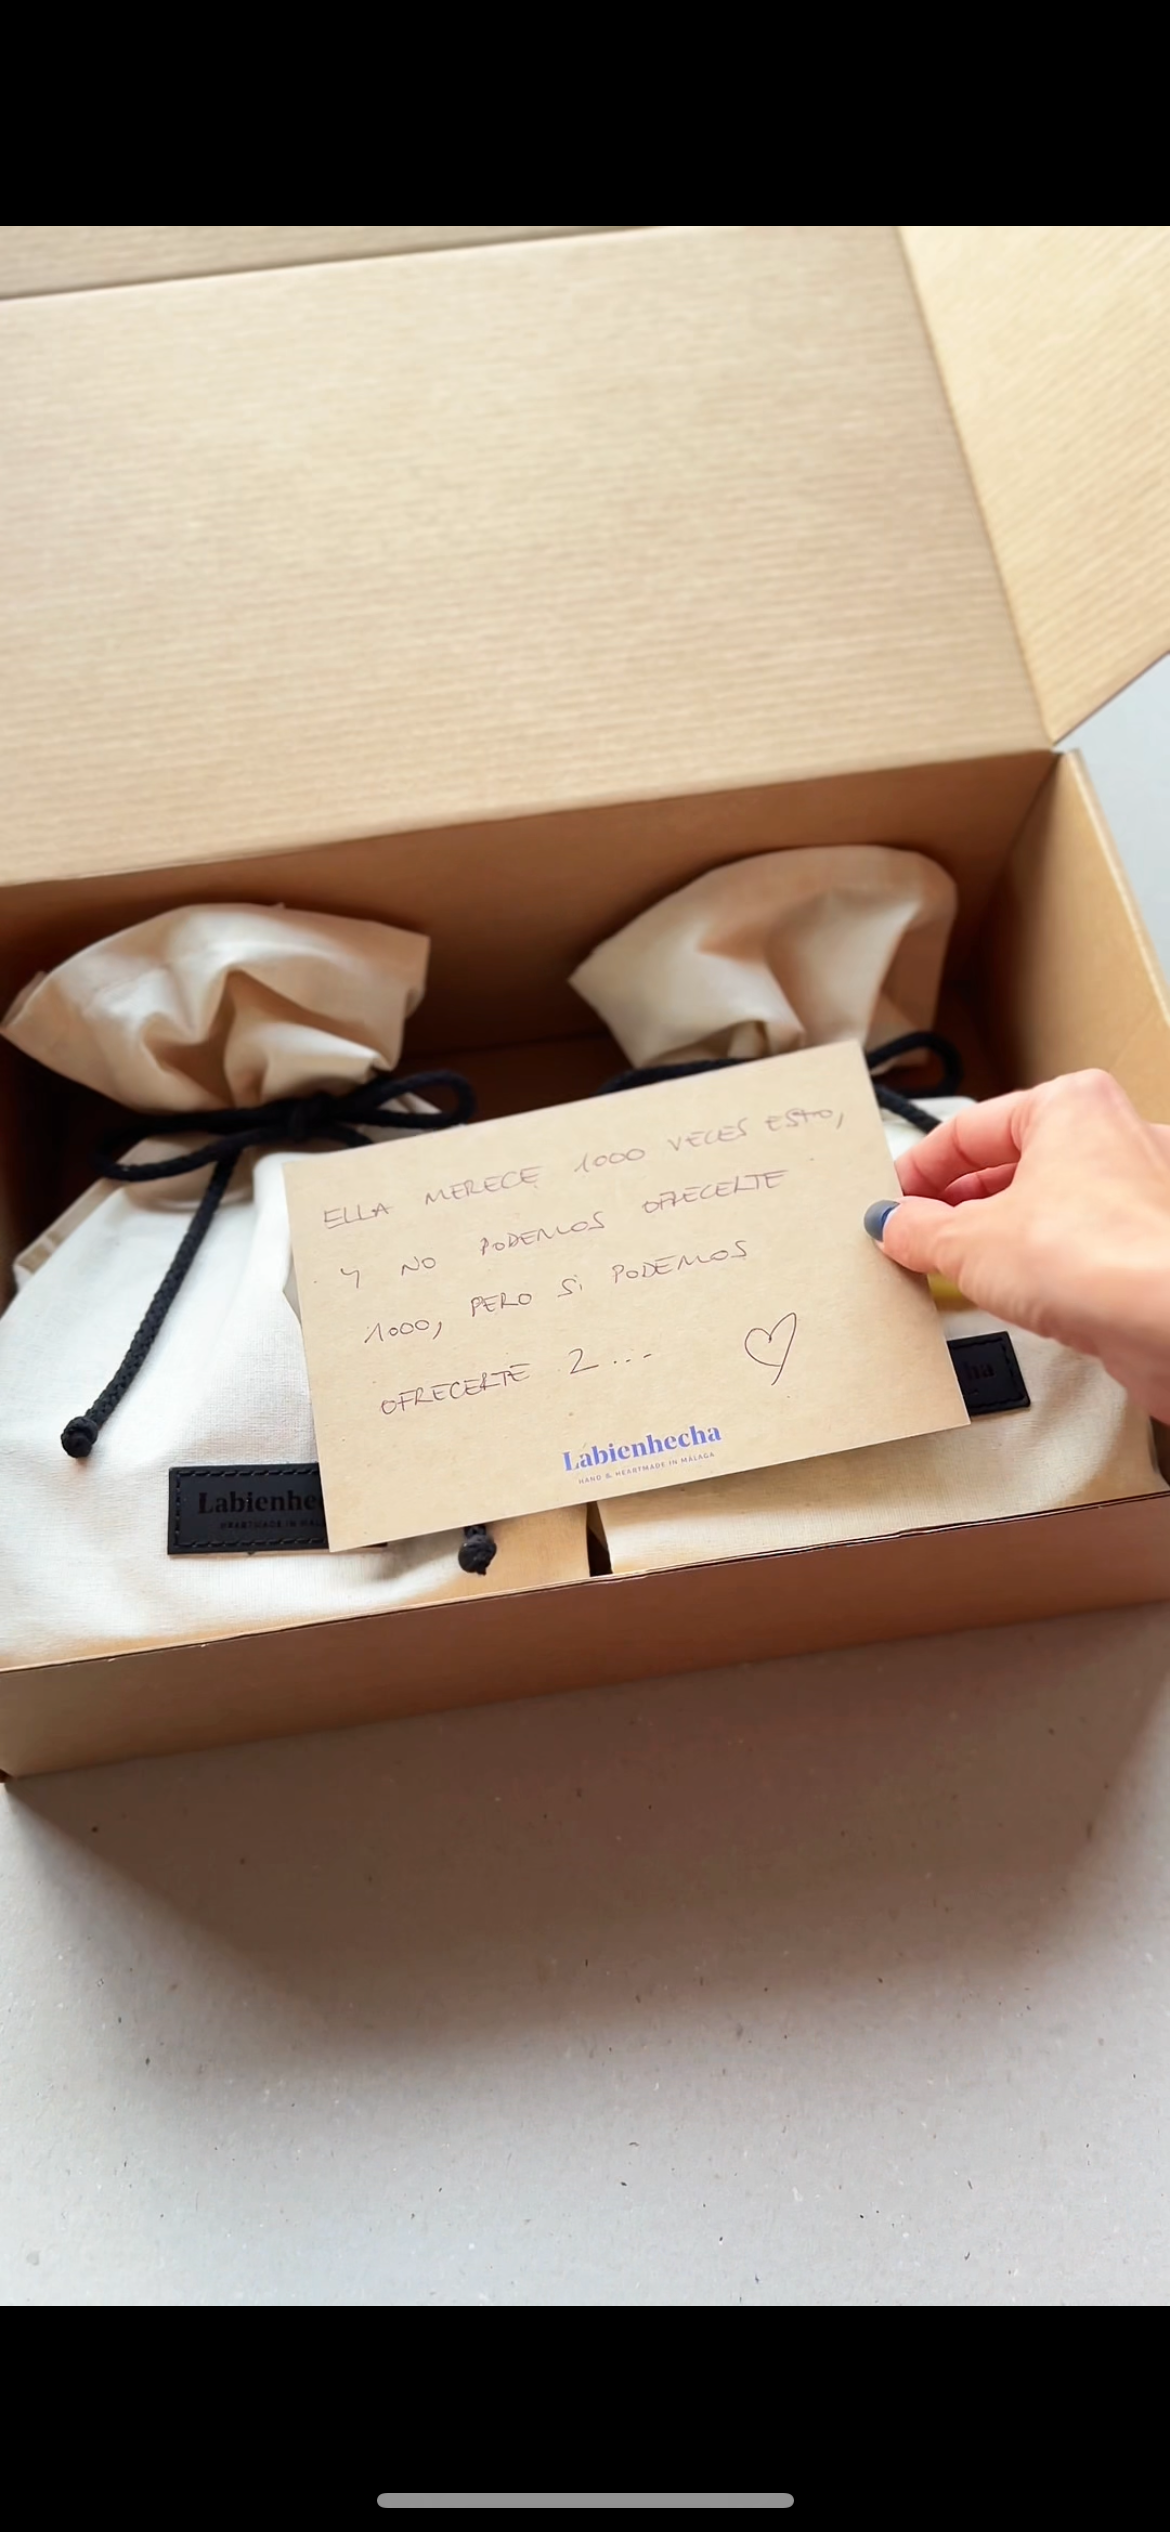 ELLA MERECE 1000 VECES ESTO,
Y NO PODEMOS OFRECERTE
1000, PERO SI PODEMOS
OFRECERTE 2...
Labienhecha
HAND & HEARTMADE IN MÁLAGA
Labienhec
HEARTMADE IN MÁL
ha